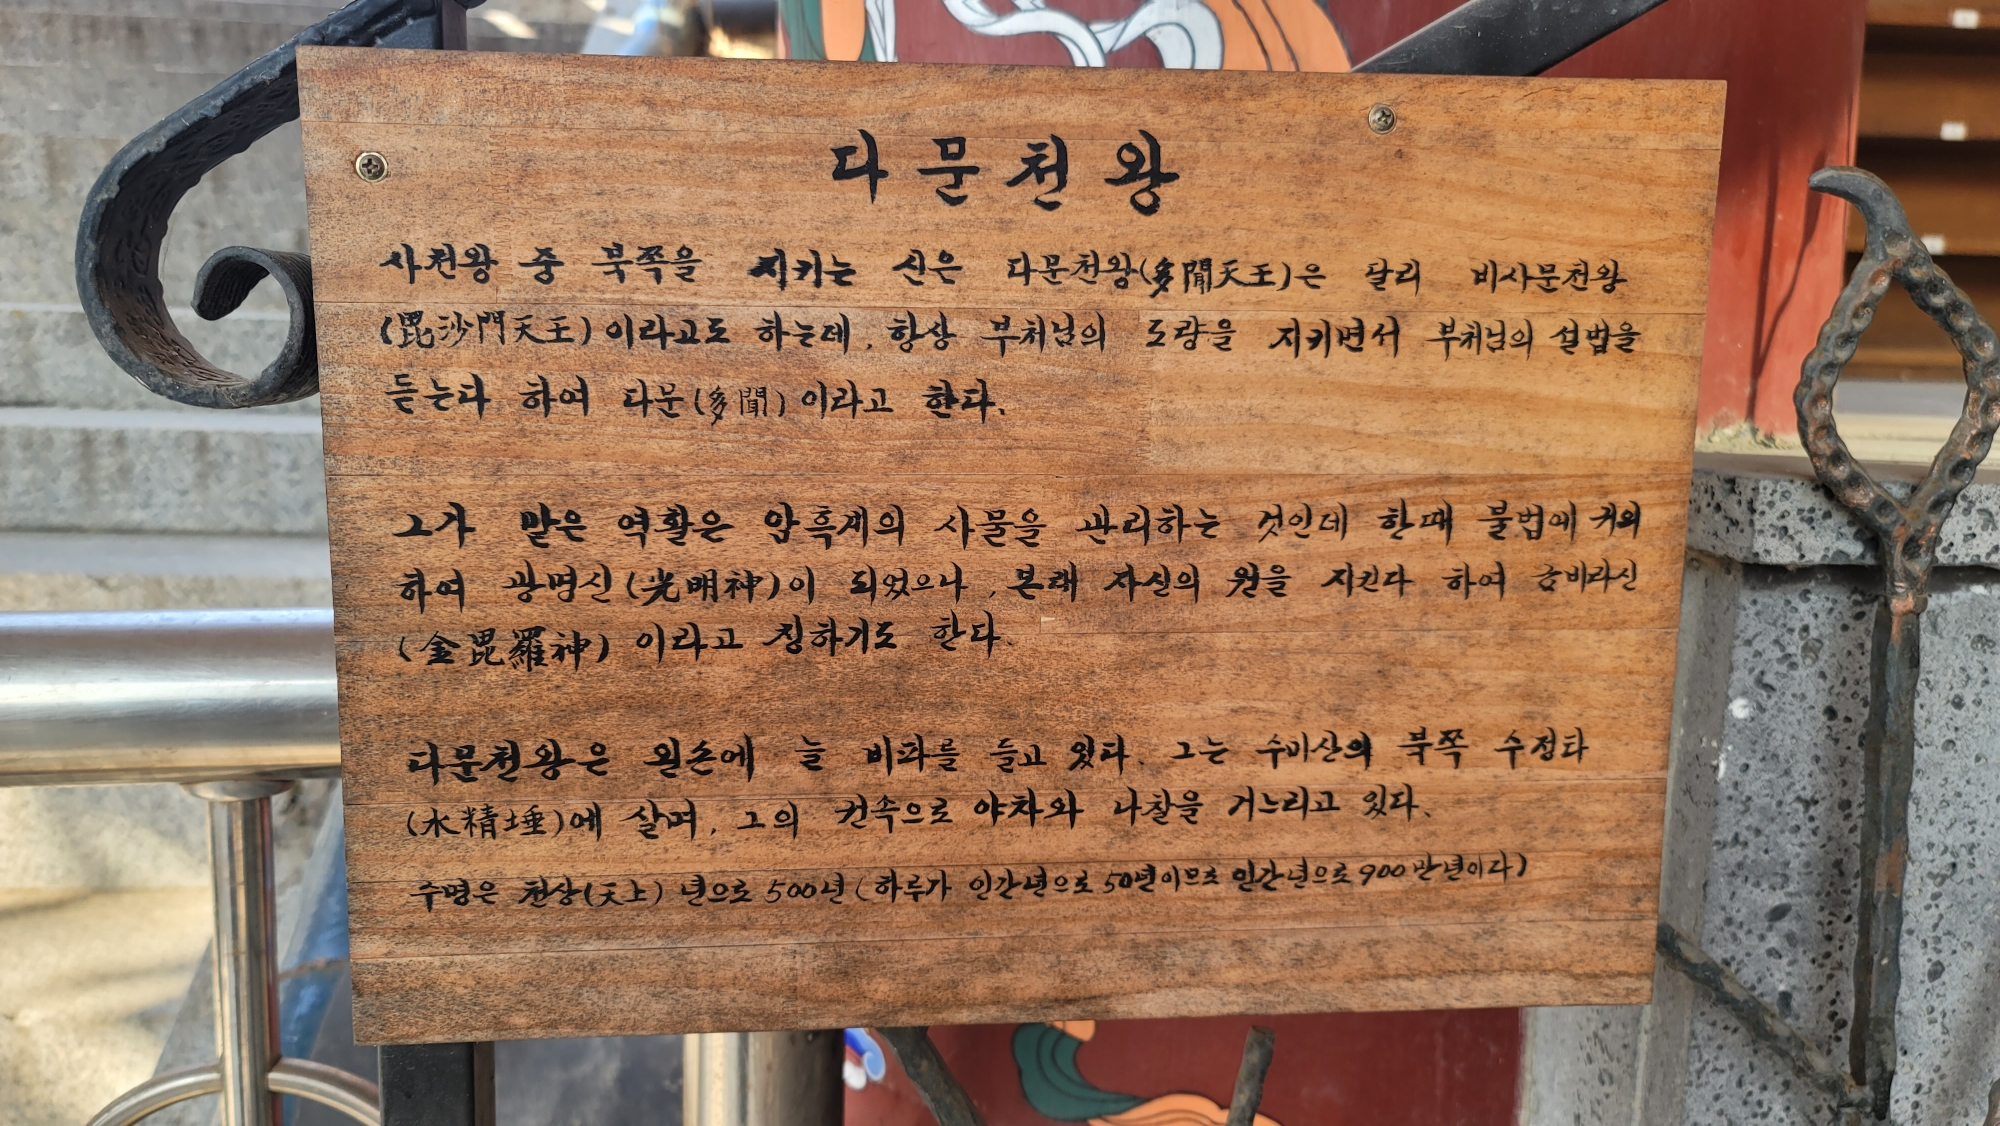 다문천왕
사천왕 중 북쪽을 지키는 신은 다문천왕(多聞天王)은 달리 비사문천왕
(毘沙門天王)이라고도 하는데, 항상 부처님의 도량을 지키면서 부처님의 설법을
듣는다 하여 다문(多聞)이라고 한다.
그가 맡은 역할은 암흑계의 사물을 관리하는 것인데 한때 불법에 귀의
하여 광명신(光明神)이 되었으나, 본래 자신의 원을 지킨다 하여 금비라신
(金毘羅神)이라고 칭하기도 한다.
다문천왕은 왼손에 늘 비파를 들고 있다. 그는 수미산의 북쪽 수정타
(水精埵)에 살며, 그의 권속으로 야차와 나찰을 거느리고 있다.
수명은 천상(天上) 년으로 500년(하루가 인간년으로 50년이므로 인간년으로 900만년이다)